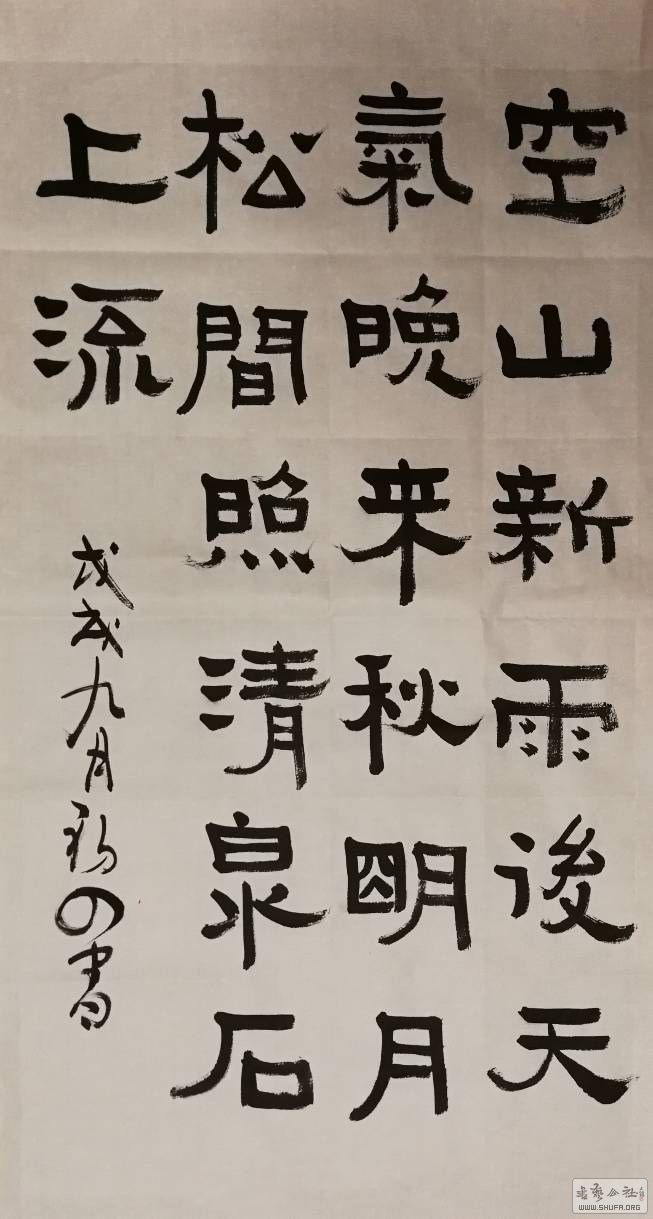 空山新雨後天
氣晚来秋明月
松間照清泉石
上流
戊戌九月
書
書艺公社
WWW.SHUFA.ORG